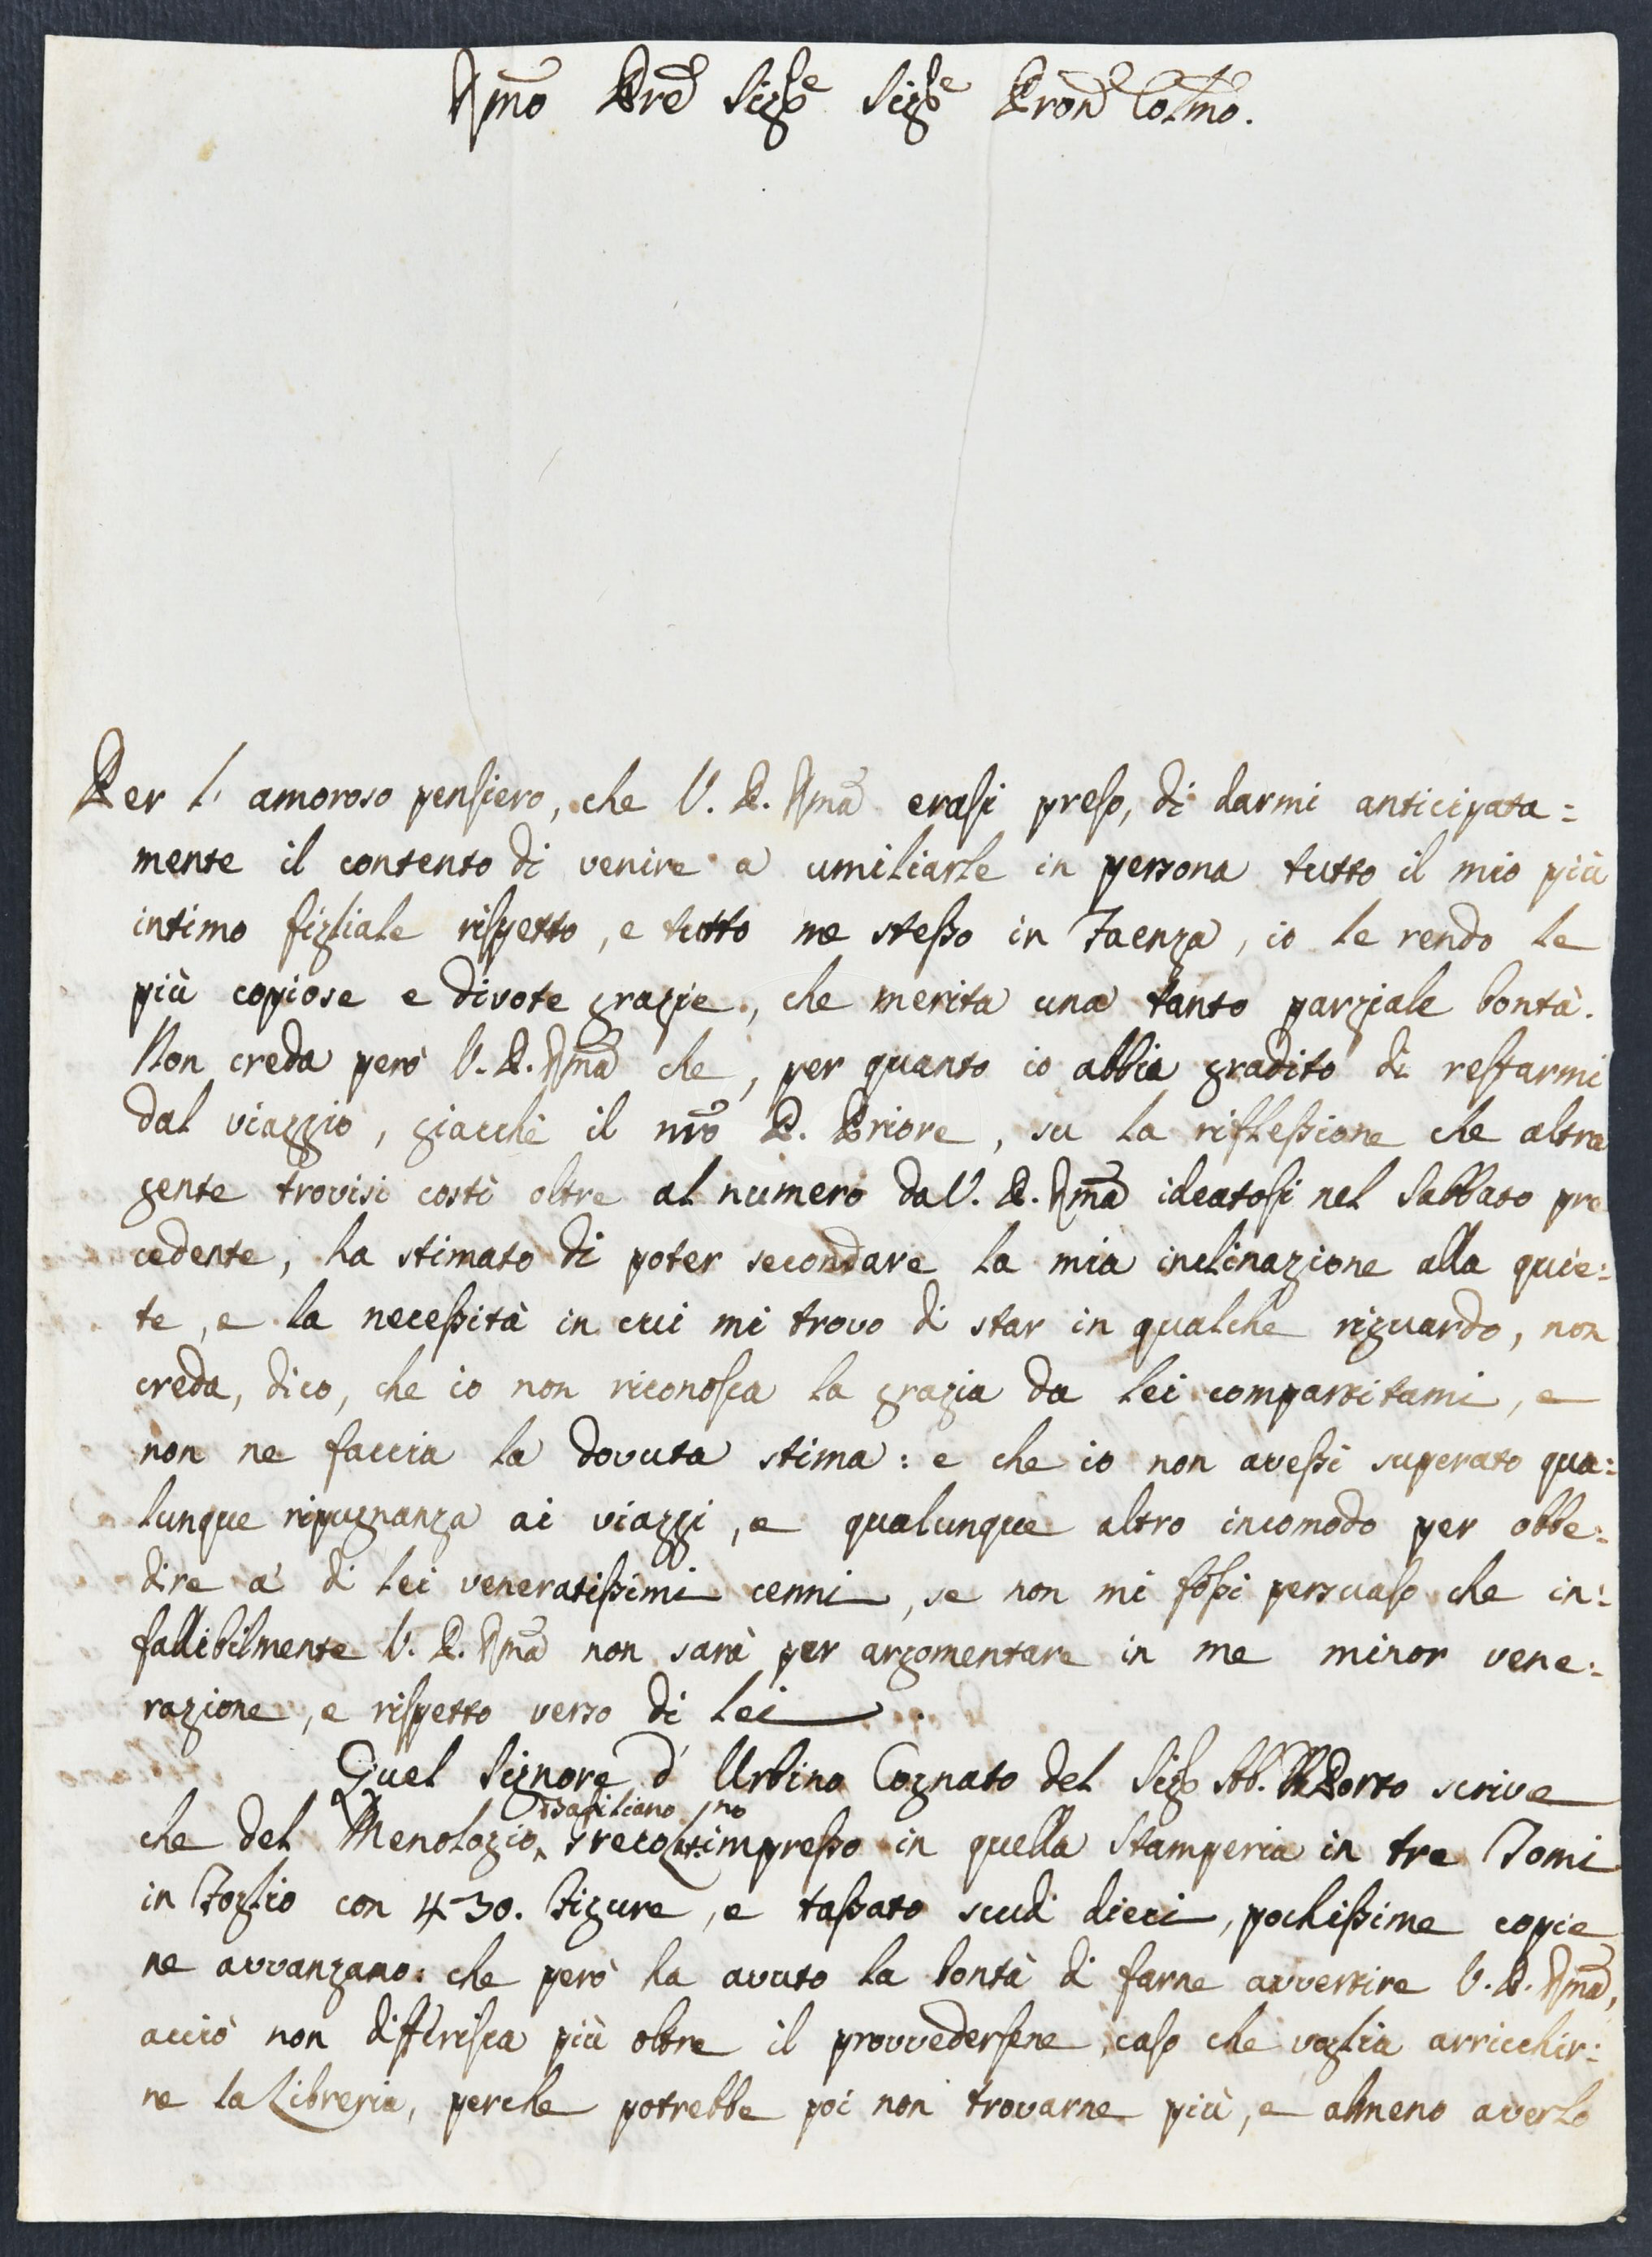 Rmo Pre Sigre Sigre Pron Colmo.
Per l' amoroso pensiero, che V. P. Rma erasi preso, di darmi anticipata=
mente il contento di venire a umiliarle in persona tutto il mio più
intimo figliale rispetto, e tutto me stesso in Faenza, io le rendo le
più copiose e divote grazie, che merita una tanto parziale bontà.
Non creda però V. P. Rma che, per quanto io abbia gradito di restarmi
dal viaggio, giacchè il nro P. Priore, su la riflessione che altra
gente trovisi costì oltre al numero da V. P. Rma ideatosi nel Sabbato pre
cedente, ha stimato di poter secondare la mia inclinazione alla quie=
te, e la necessità in cui mi trovo di star in qualche riguardo, non
creda, dico, che io non riconosca la grazia da lei compartitami, e
non ne faccia la dovuta stima: e che io non avessi superato qua=
lunque ripugnanza ai viaggi, e qualunque altro incomodo per obbe=
dire a' di lei veneratissimi cenni, se non mi fossi persuaso che in=
fallibilmente V. P. Rma non sarà per argomentare in me minor vene=
razione, e rispetto verso di lei.
Quel Signore d' Urbino Cognato del Sigr Ab. Porto scrive
che del Menologio Basiliano Greco impresso in quella Stamperia in tre Tomi
in Foglio con 430. Figure, e tassato scudi dieci, pochissime copie
ne avvanzano: che però ha avuto la bontà di farne avvertire V. P. Rma,
acciò non differisca più oltre il provvedersene, caso che voglia arricchir=
ne la Libreria, perche potrebbe poi non trovarne più, e almeno averlo